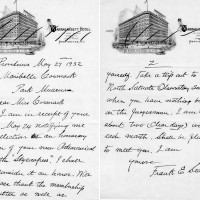 Narragansett Hotel
Providence May 27 1932
Maribelle Cormack
Park Museum
Dear Miss Cormack
I am in receipt of your
May 26 notifying me
election as an honorary
of your own Astronomical
the Skyscrapers". I
consider it an honor. Will
please thank the membership
as well as
Narragansett Hotel
2
yourself. Take a trip out to
North Scituate Observatory
when you have nothing
on the programme. I am
about two clear days
each month. Shall be
to meet you. I am
yours
Frank E. Se